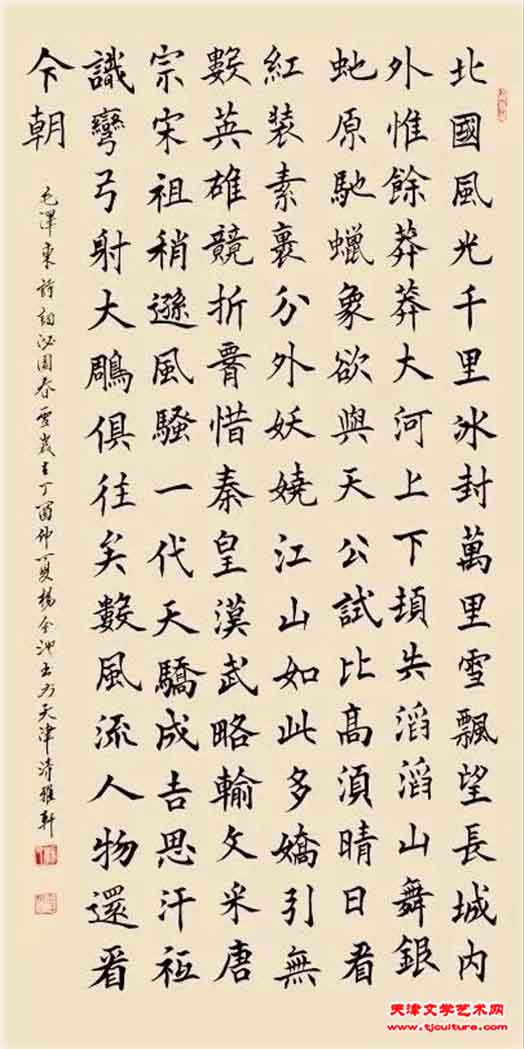 北國風光千里冰封萬里雪飄望長城内
外惟餘莽莽大河上下頓失滔滔山舞銀
虵原馳蠟象欲與天公試比高須晴日看
紅裝素裹分外妖嬈江山如此多嬌引無
數英雄競折腰惜秦皇漢武略輸文采唐
宗宋祖稍遜風騷一代天驕成吉思汗祗
識彎弓射大鵰俱往矣數風流人物還看
今朝
毛澤東詩詞沁园春雪歲在丁酉仲夏楊金池书於天津清雅軒
天津文学艺术网
www.tjculture.com